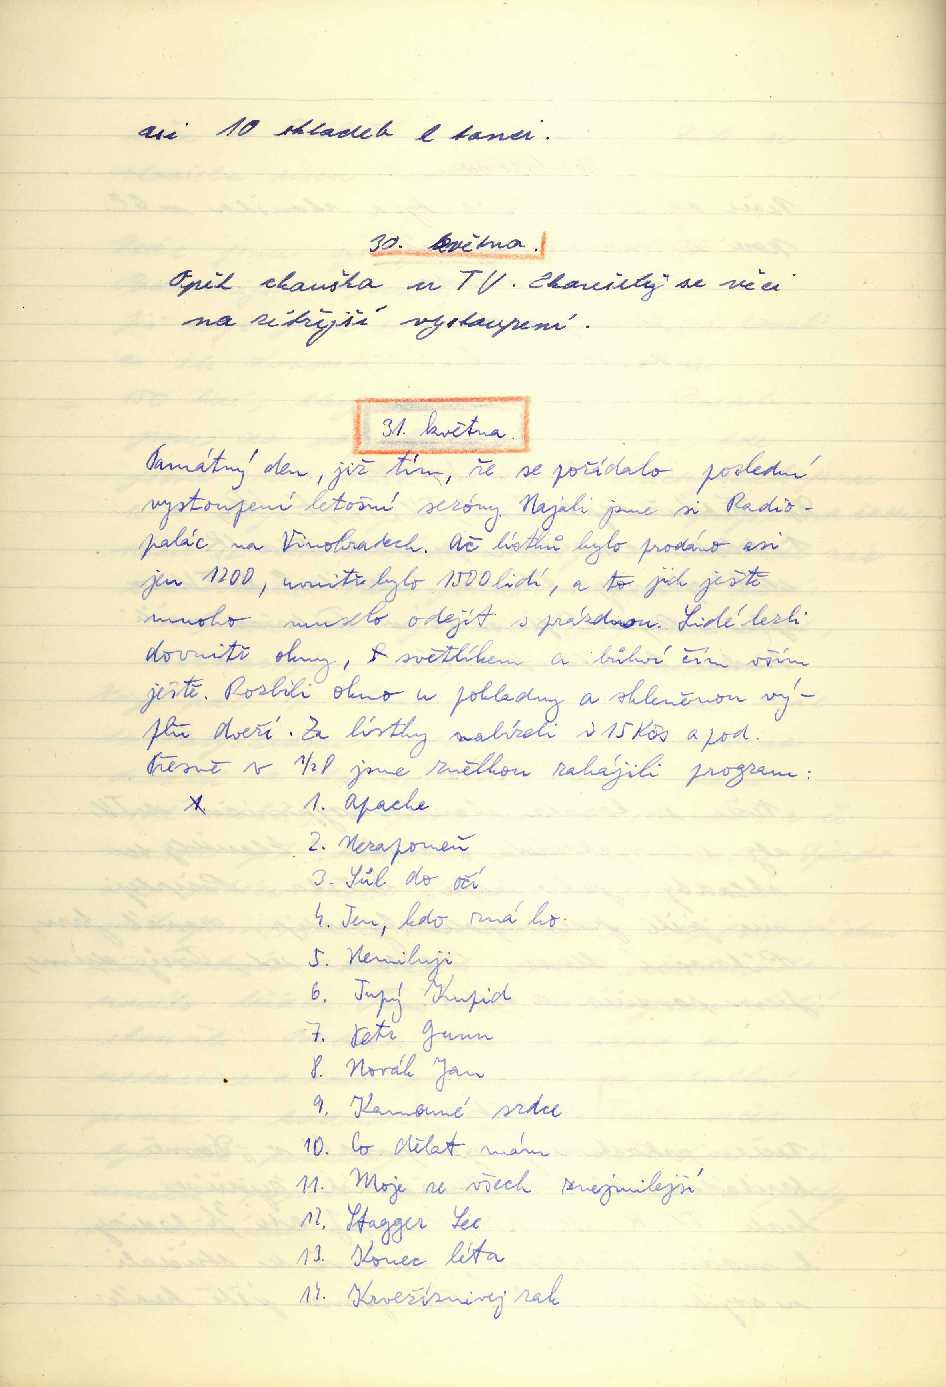 asi 10 skladeb k tanci.
30. května.
Opět zkouška v TV. Zkoušely se věci
na zítřejší vystoupení.
31. května.
Památný den, již tím, že se pořádalo poslední
vystoupení letošní sezóny. Najali jsme si Radio-
palác na Vinohradech. Ač lístků bylo prodáno asi
jen 1200, uvnitř bylo 1500 lidí, a to jich ještě
mnoho muselo odejít s prázdnou. Lidé lezli
dovnitř okny, světlíkem a bůhví čím vším
ještě. Rozbili okno u pokladny a skleněnou vý-
plň dveří. Za lístky nabízeli i 15 Kčs a pod.
Přesně v 1/2 8 jsme znělkou zahájili program:
1. Apache
2. Nezapomeň
3. Sůl do očí
4. Jen, kdo zná ho.
5. Nemiluji
6. Tupý Kupid
7. Petr Gunn
8. Novák Jan
9. Kamenné srdce
10. Co dělat mám
11. Moje ze všech nejmilejší
12. Stagger Lee
13. Konec léta
14. Krvežíznivej rak